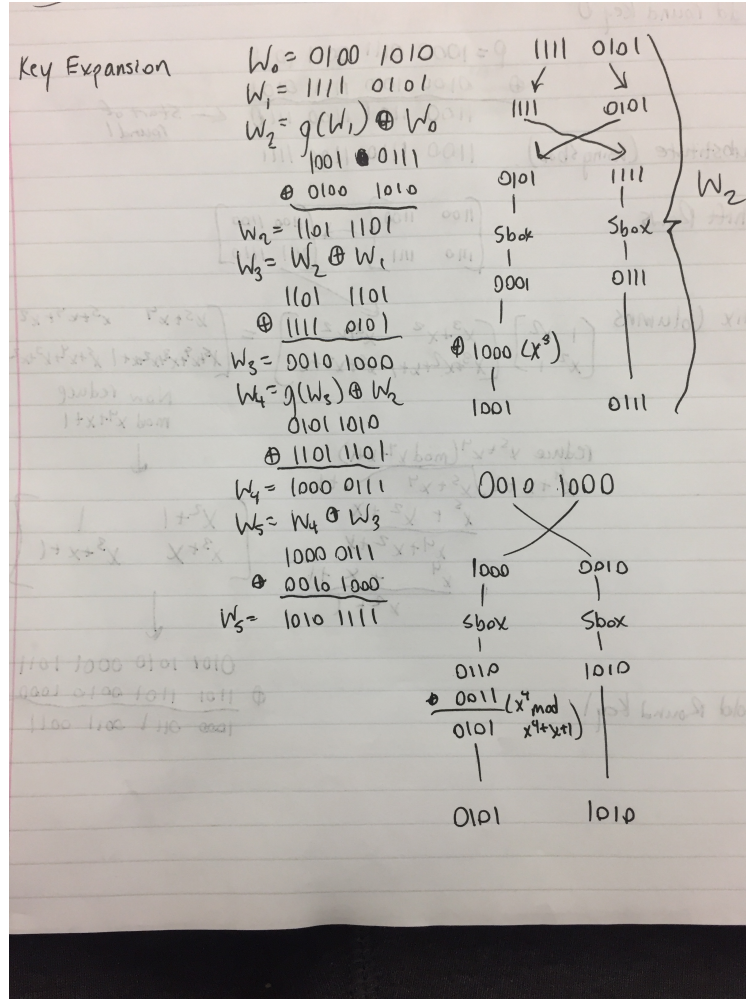 Key Expansion
W₀ = 0100 1010
W₁ = 1111 0101
W₂ = g(W₁) ⊕ W₀
1001 0111
⊕ 0100 1010
W₂ = 1101 1101
W₃ = W₂ ⊕ W₁
1101 1101
⊕ 1111 0101
W₃ = 0010 1000
W₄ = g(W₃) ⊕ W₂
0101 1010
⊕ 1101 1101
W₄ = 1000 0111
W₅ = W₄ ⊕ W₃
1000 0111
⊕ 0010 1000
W₅ = 1010 1111
1111 0101
1111 0101
0101 1111
Sbox Sbox
0001 0111
⊕ 1000 (x³)
1001 0111
W₂
0010 1000
1000 0010
Sbox Sbox
0110 1010
⊕ 0011 (x⁴ mod
0101 x⁴+x+1)
0101 1010